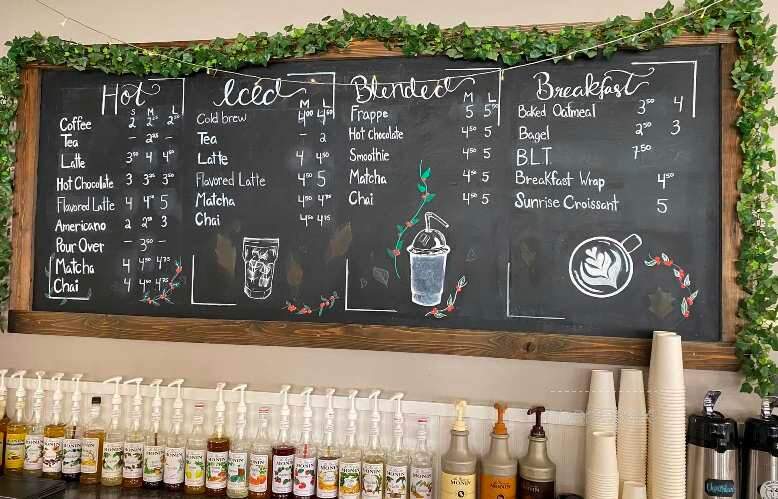 Hot
S M L
Coffee 2 2²⁵ 2⁵⁰
Tea - 2²⁵ -
Latte 3⁵⁰ 4 4⁵⁰
Hot Chocolate 3 3²⁵ 3⁵⁰
Flavored Latte 4 4⁵⁰ 5
Americano 2 2⁵⁰ 3
Pour Over - 3⁵⁰ -
Matcha 4 4⁵⁰ 4⁷⁵
Chai 4 4⁵⁰ 4⁷⁵
Iced
M L
Cold brew 4⁰⁰ 4⁵⁰
Tea - 2
Latte 4 4⁵⁰
Flavored Latte 4⁵⁰ 5
Matcha 4⁵⁰ 4⁷⁵
Chai 4⁵⁰ 4⁷⁵
Blended
M L
Frappe 5 5⁵⁰
Hot Chocolate 4⁵⁰ 5
Smoothie 4⁵⁰ 5
Matcha 4⁵⁰ 5
Chai 4⁵⁰ 5
Breakfast
Baked Oatmeal 3⁵⁰ 4
Bagel 2⁵⁰ 3
B.L.T. 7⁵⁰
Breakfast Wrap 4⁵⁰
Sunrise Croissant 5
MONIN
MONIN
MONIN
MONIN
MONIN
MONIN
MONIN
MONIN
MONIN